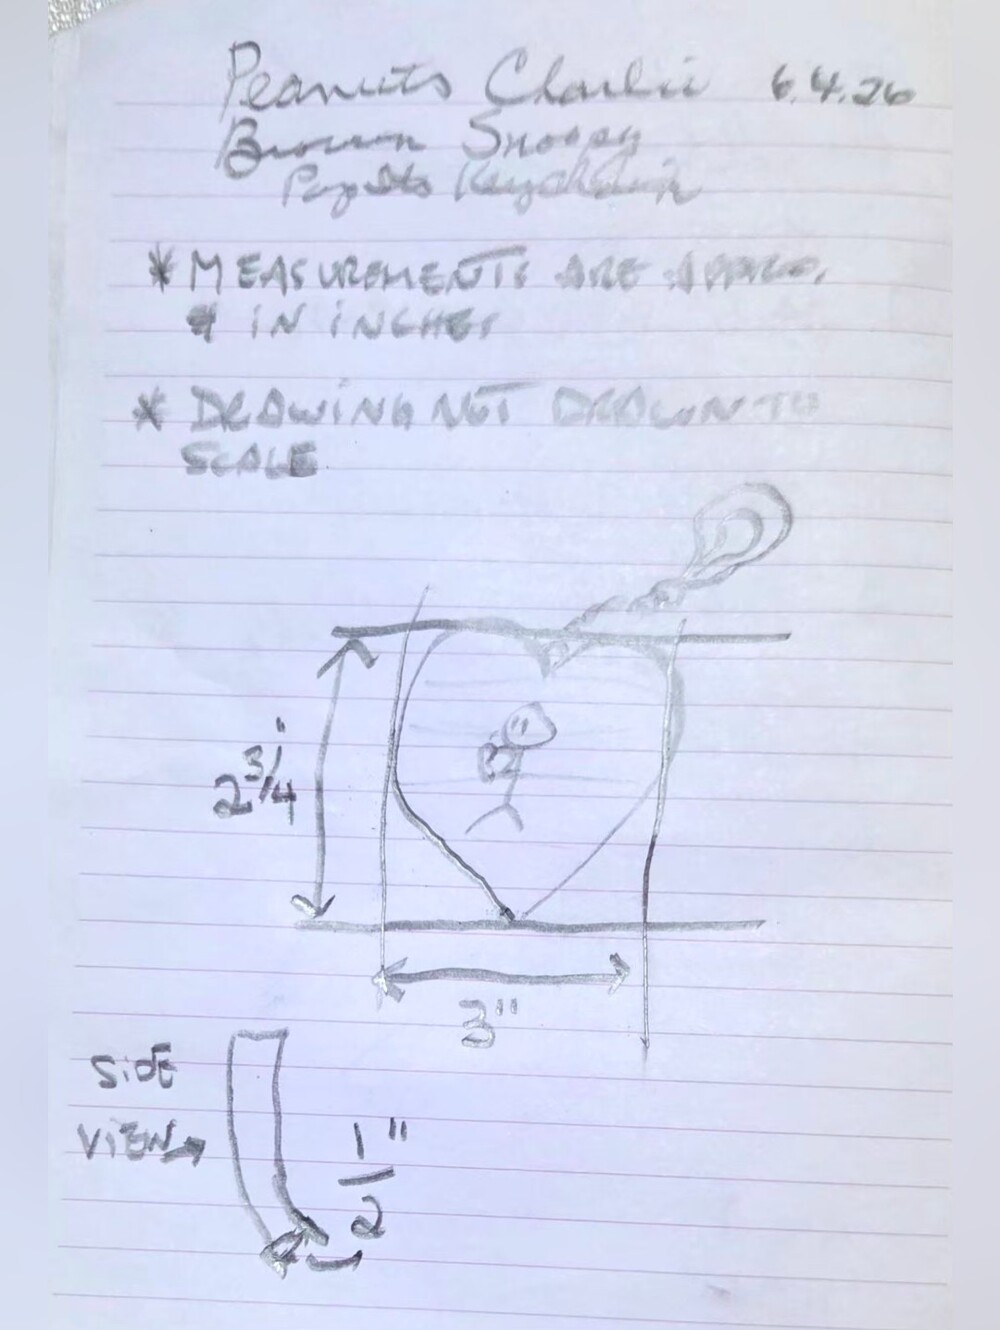 Peanuts Charlie 6.4.26
Brown Snoopy
Keychain
* MEASUREMENTS ARE APPROX.
& IN INCHES
* DRAWING NOT DRAWN TO
SCALE
2 3/4"
3"
SIDE
VIEW
1/2"